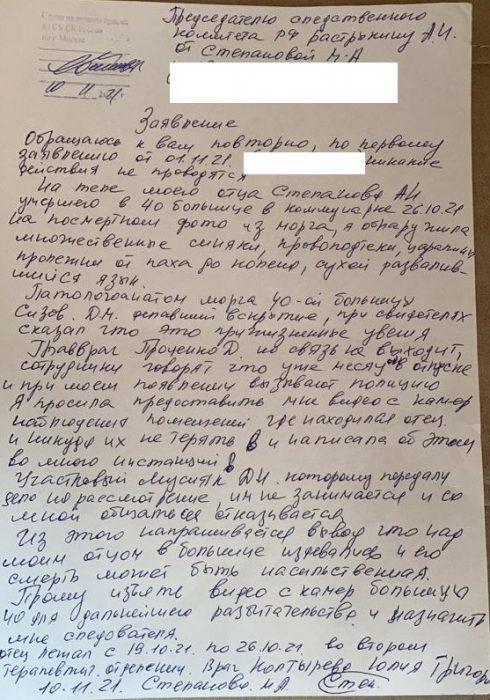 Председателю следственного
комитета РФ Бастрыкину А.И.
от Степановой Н.А
10 11 21
Заявление
Обращаюсь к вам повторно, по первому
заявлению от 01.11.21. никакие
действия не проводятся
На теле моего отца Степанова А.И
умершего в 40 больнице в коммунарке 26.10.21
на посмертном фото из морга, я обнаружила
множественные синяки, кровоподтеки, царапины
пролежни от паха до колено, сухой развалив-
шийся язык.
Патологоанатом морга 40-ой больницы
Сизов. Д.Н. делавший вскрытие, при свидетелях
сказал что это прижизненные увечия
Главврач Проценко Д. на связь не выходит,
сотрудники говорят что уже месяц в отпуске
и при моем появлении вызывают полицию
Я просила предоставить мне видео с камер
наблюдения помещений где находился отец.
и никуда их не терять и написала об этом
во много инстанций!
Участковый Мусияк Д.И. которому передали
дело на рассмотрение, им не занимается и со
мной общаться отказывается
Из этого напрашивается вывод что над
моим отцом в больнице издевались и его
смерть может быть насильственная.
Прошу изъять видео с камер больницы
40 для дальнейшего разбитательства и назначить
мне следователя.
отец лежал с 19.10.21. по 26.10.21. во втором
терапевтич. отделении. Врач Колтырева Юлия Григор
10.11.21. Степанова. Н.А